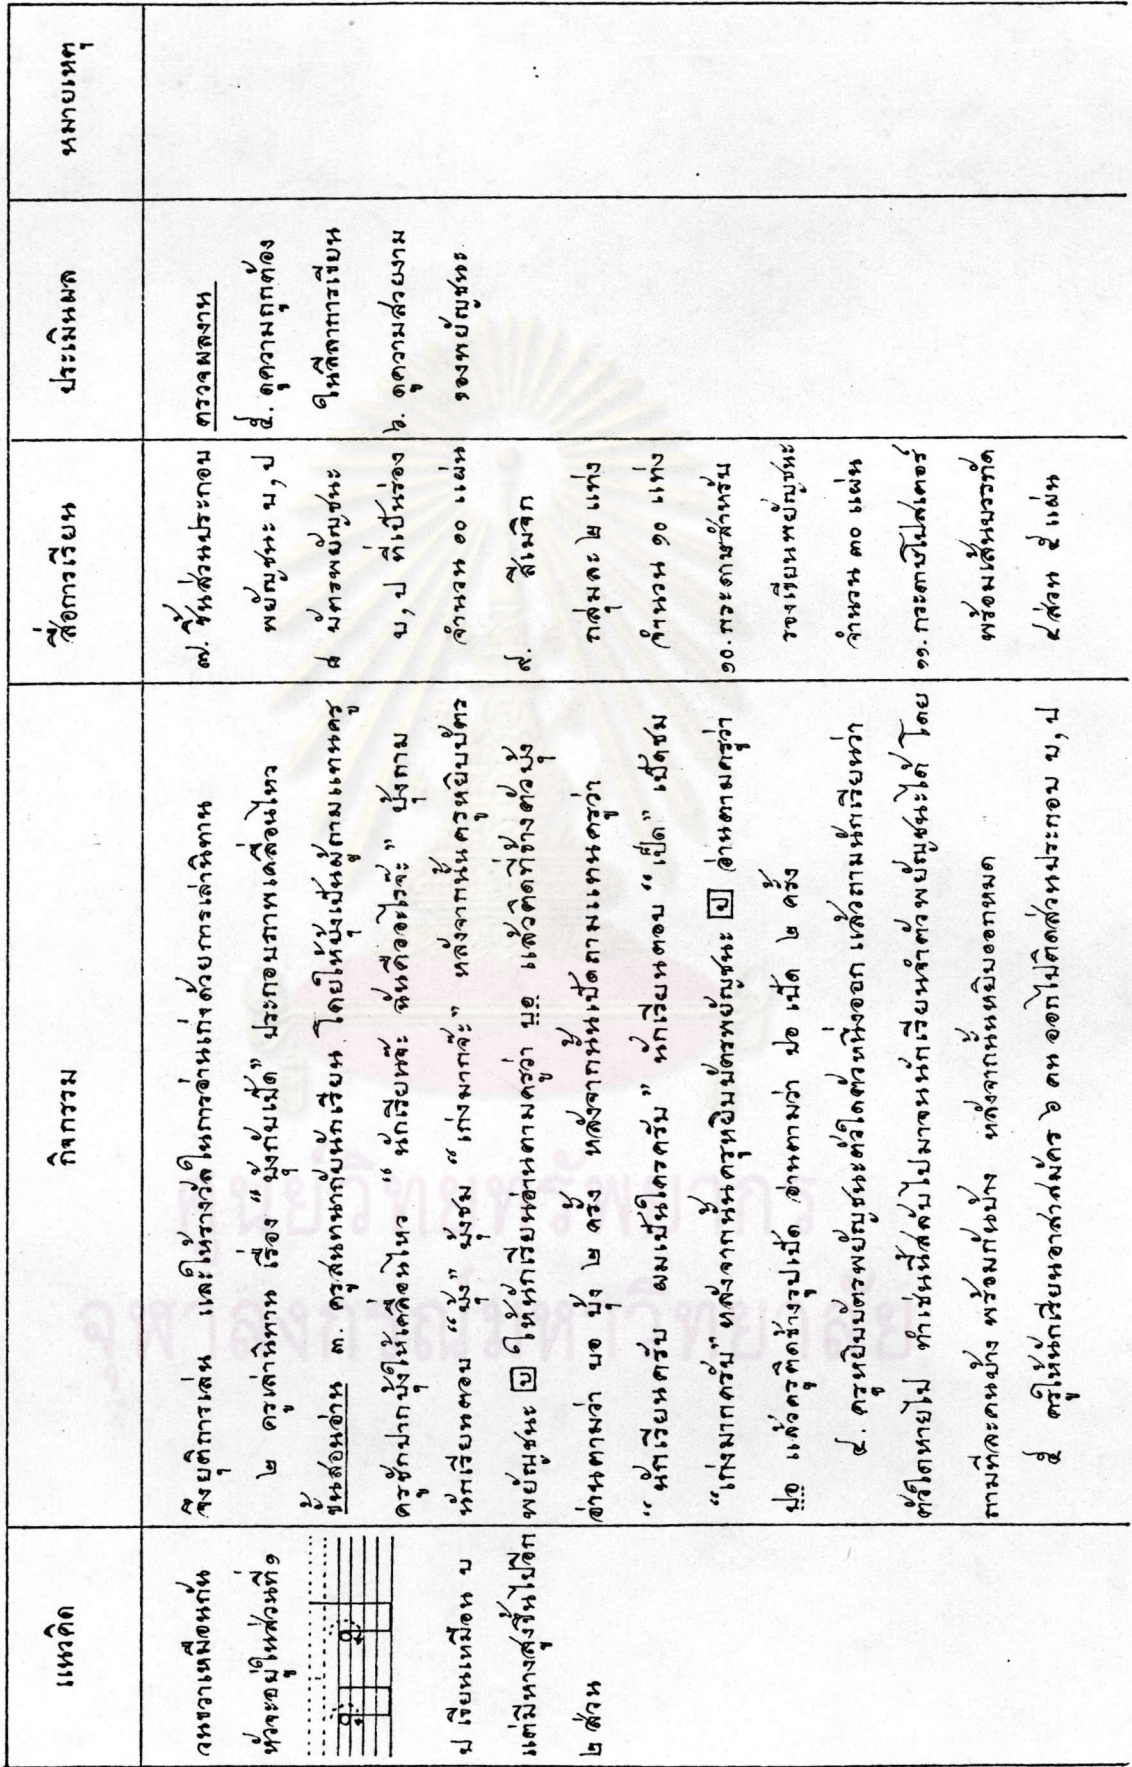 แนวคิด
กิจกรรม
สื่อการเรียน
ประเมินผล
หมายเหตุ
วนขวาเหมือนกัน
หัวจะอยู่ในส่วนที่๑
ป เขียนเหมือน บ
แต่มีหางสูงขึ้นไปอีก
๒ ส่วน
จึงยุติการเล่น และให้รางวัลในการอ่านเก่งด้วยการเล่านิทาน
๒ ครูเล่านิทาน เรื่อง “บุ้งกับเป็ด” ประกอบภาพเคลื่อนไหว
ขั้นสอนอ่าน ๓. ครูสนทนากับนักเรียน โดยให้บุ้งเป็นผู้ถามแทนครู
ครูชักปากบุ้งให้เคลื่อนไหว “นักเรียนจ๊ะ ฉันคืออะไรจ๊ะ” บุ้งถาม
นักเรียนตอบ “บุ้ง” บุ้งชม “เก่งมากจ้ะ” หลังจากนั้นครูหยิบบัตร
พยัญชนะ บ ให้นักเรียนอ่านตามครูว่า บอ แล้วติดที่ข้างตัวบุ้ง
อ่านตามว่า บอ บุ้ง ๒ ครั้ง หลังจากนั้นเป็ดถามแทนครูว่า
“นักเรียนครับ ผมเป็นใครครับ” นักเรียนตอบ “เป็ด” เป็ดชม
“เก่งมากครับ” หลังจากนั้นครูหยิบบัตรพยัญชนะ ป อ่านตามครูว่า
ปอ แล้วครูติดข้างรูปเป็ด อ่านตามว่า ปอ เป็ด ๒ ครั้ง
๔. ครูหยิบบัตรพยัญชนะตัวใดตัวหนึ่งออก แล้วถามนักเรียนว่า
ตัวใดหายไป ทำเช่นนี้สลับไปมาจนนักเรียนจำตัวพยัญชนะได้ โดย
ถามทีละคนบ้าง พร้อมกันบ้าง หลังจากนั้นหยิบออกหมด
๕ ครูให้นักเรียนอาสาสมัคร ๖ คน ออกไปติดส่วนประกอบ บ, ป
๗. ชิ้นส่วนประกอบ
พยัญชนะ บ, ป
๘ บัตรพยัญชนะ
บ, ป ที่เป็นร่อง
จำนวน ๑๐ แผ่น
๙. สีเมจิก
กลุ่มละ ๒ แท่ง
จำนวน ๑๐ แท่ง
๑๐. กระดาษสำหรับ
รองเขียนพยัญชนะ
จำนวน ๓๐ แผ่น
๑๑. กระดาษโปสเตอร์
พร้อมเส้นบรรทัด
๔ ส่วน ๕ แผ่น
ตรวจผลงาน
๕. ดูความถูกต้อง
ในลีลาการเขียน
๖. ดูความสวยงาม
ของพยัญชนะ
ศูนย์วิทยทรัพยากร
จุฬาลงกรณ์มหาวิทยาลัย